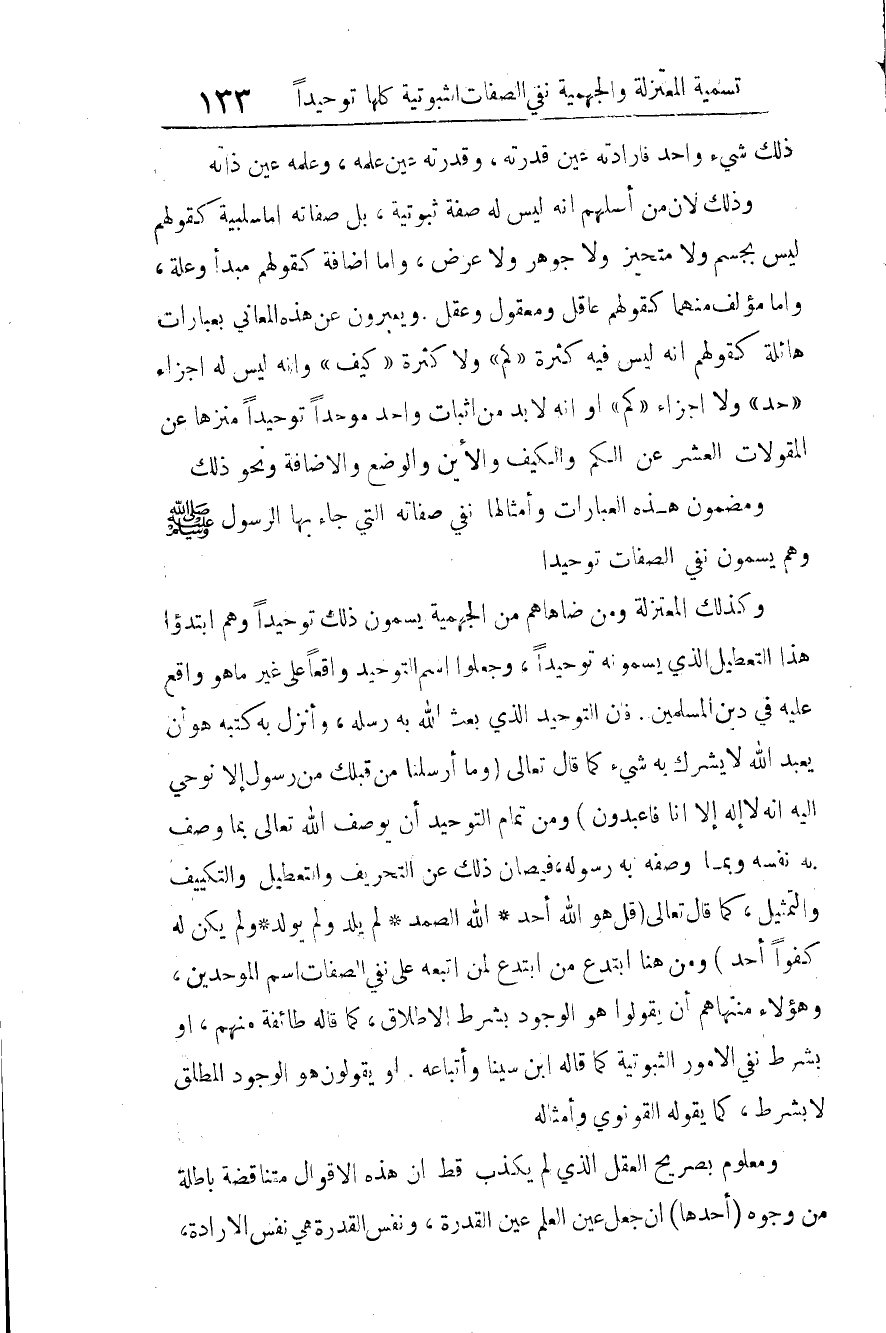 تسمية المعتزلة والجهمية نفي الصفات الثبوتية كلها توحيداً ١٣٣
ذلك شيء واحد فارادته عين قدرته ، وقدرته عين علمه ، وعلمه عين ذاته
وذلك لان من أصلهم انه ليس له صفة ثبوتية ، بل صفاته اما سلبية كقولهم
ليس بجسم ولا متحيز ولا جوهر ولا عرض ، واما اضافة كقولهم مبدأ وعلة ،
واما مؤلف منهما كقولهم عاقل ومعقول وعقل . ويعبرون عن هذه المعاني بعبارات
هائلة كقولهم انه ليس فيه كثرة «كم» ولا كثرة « كيف » وانه ليس له اجزاء
«حد» ولا اجزاء «كم» او انه لابد من اثبات واحد موحداً توحيداً منزها عن
المقولات العشر عن الكم والكيف والأين والوضع والاضافة ونحو ذلك
ومضمون هـذه العبارات وأمثالها نفي صفاته التي جاء بها الرسول ﷺ
وهم يسمون نفي الصفات توحيدا
وكذلك المعتزلة ومن ضاهاهم من الجهمية يسمون ذلك توحيداً وهم ابتدؤا
هذا التعطيل الذي يسمونه توحيداً ، وجعلوا اسم التوحيد واقعاً على غير ماهو واقع
عليه في دين المسلمين . فان التوحيد الذي بعث الله به رسله ، وأنزل به كتبه هو أن
يعبد الله لا يشرك به شيء كما قال تعالى ( وما أرسلنا من قبلك من رسول إلا نوحي
اليه انه لا إله إلا انا فاعبدون ) ومن تمام التوحيد أن يوصف الله تعالى بما وصف
به نفسه وبمـا وصفه به رسوله ، فيصان ذلك عن التحريف والتعطيل والتكييف
والتمثيل ، كما قال تعالى ( قل هو الله أحد * الله الصمد * لم يلد ولم يولد * ولم يكن له
كفواً أحد ) ومن هنا ابتدع من ابتدع لمن اتبعه على نفي الصفات اسم الموحدين ،
وهؤلاء منتهاهم أن يقولوا هو الوجود بشرط الاطلاق ، كما قاله طائفة منهم ، او
بشرط نفي الامور الثبوتية كما قاله ابن سينا وأتباعه . او يقولون هو الوجود المطلق
لا بشرط ، كما يقوله القونوي وأمثاله
ومعلوم بصريح العقل الذي لم يكذب قط ان هذه الاقوال متناقضة باطلة
من وجوه ( أحدها ) ان جعل عين العلم عين القدرة ، ونفس القدرة هي نفس الارادة،